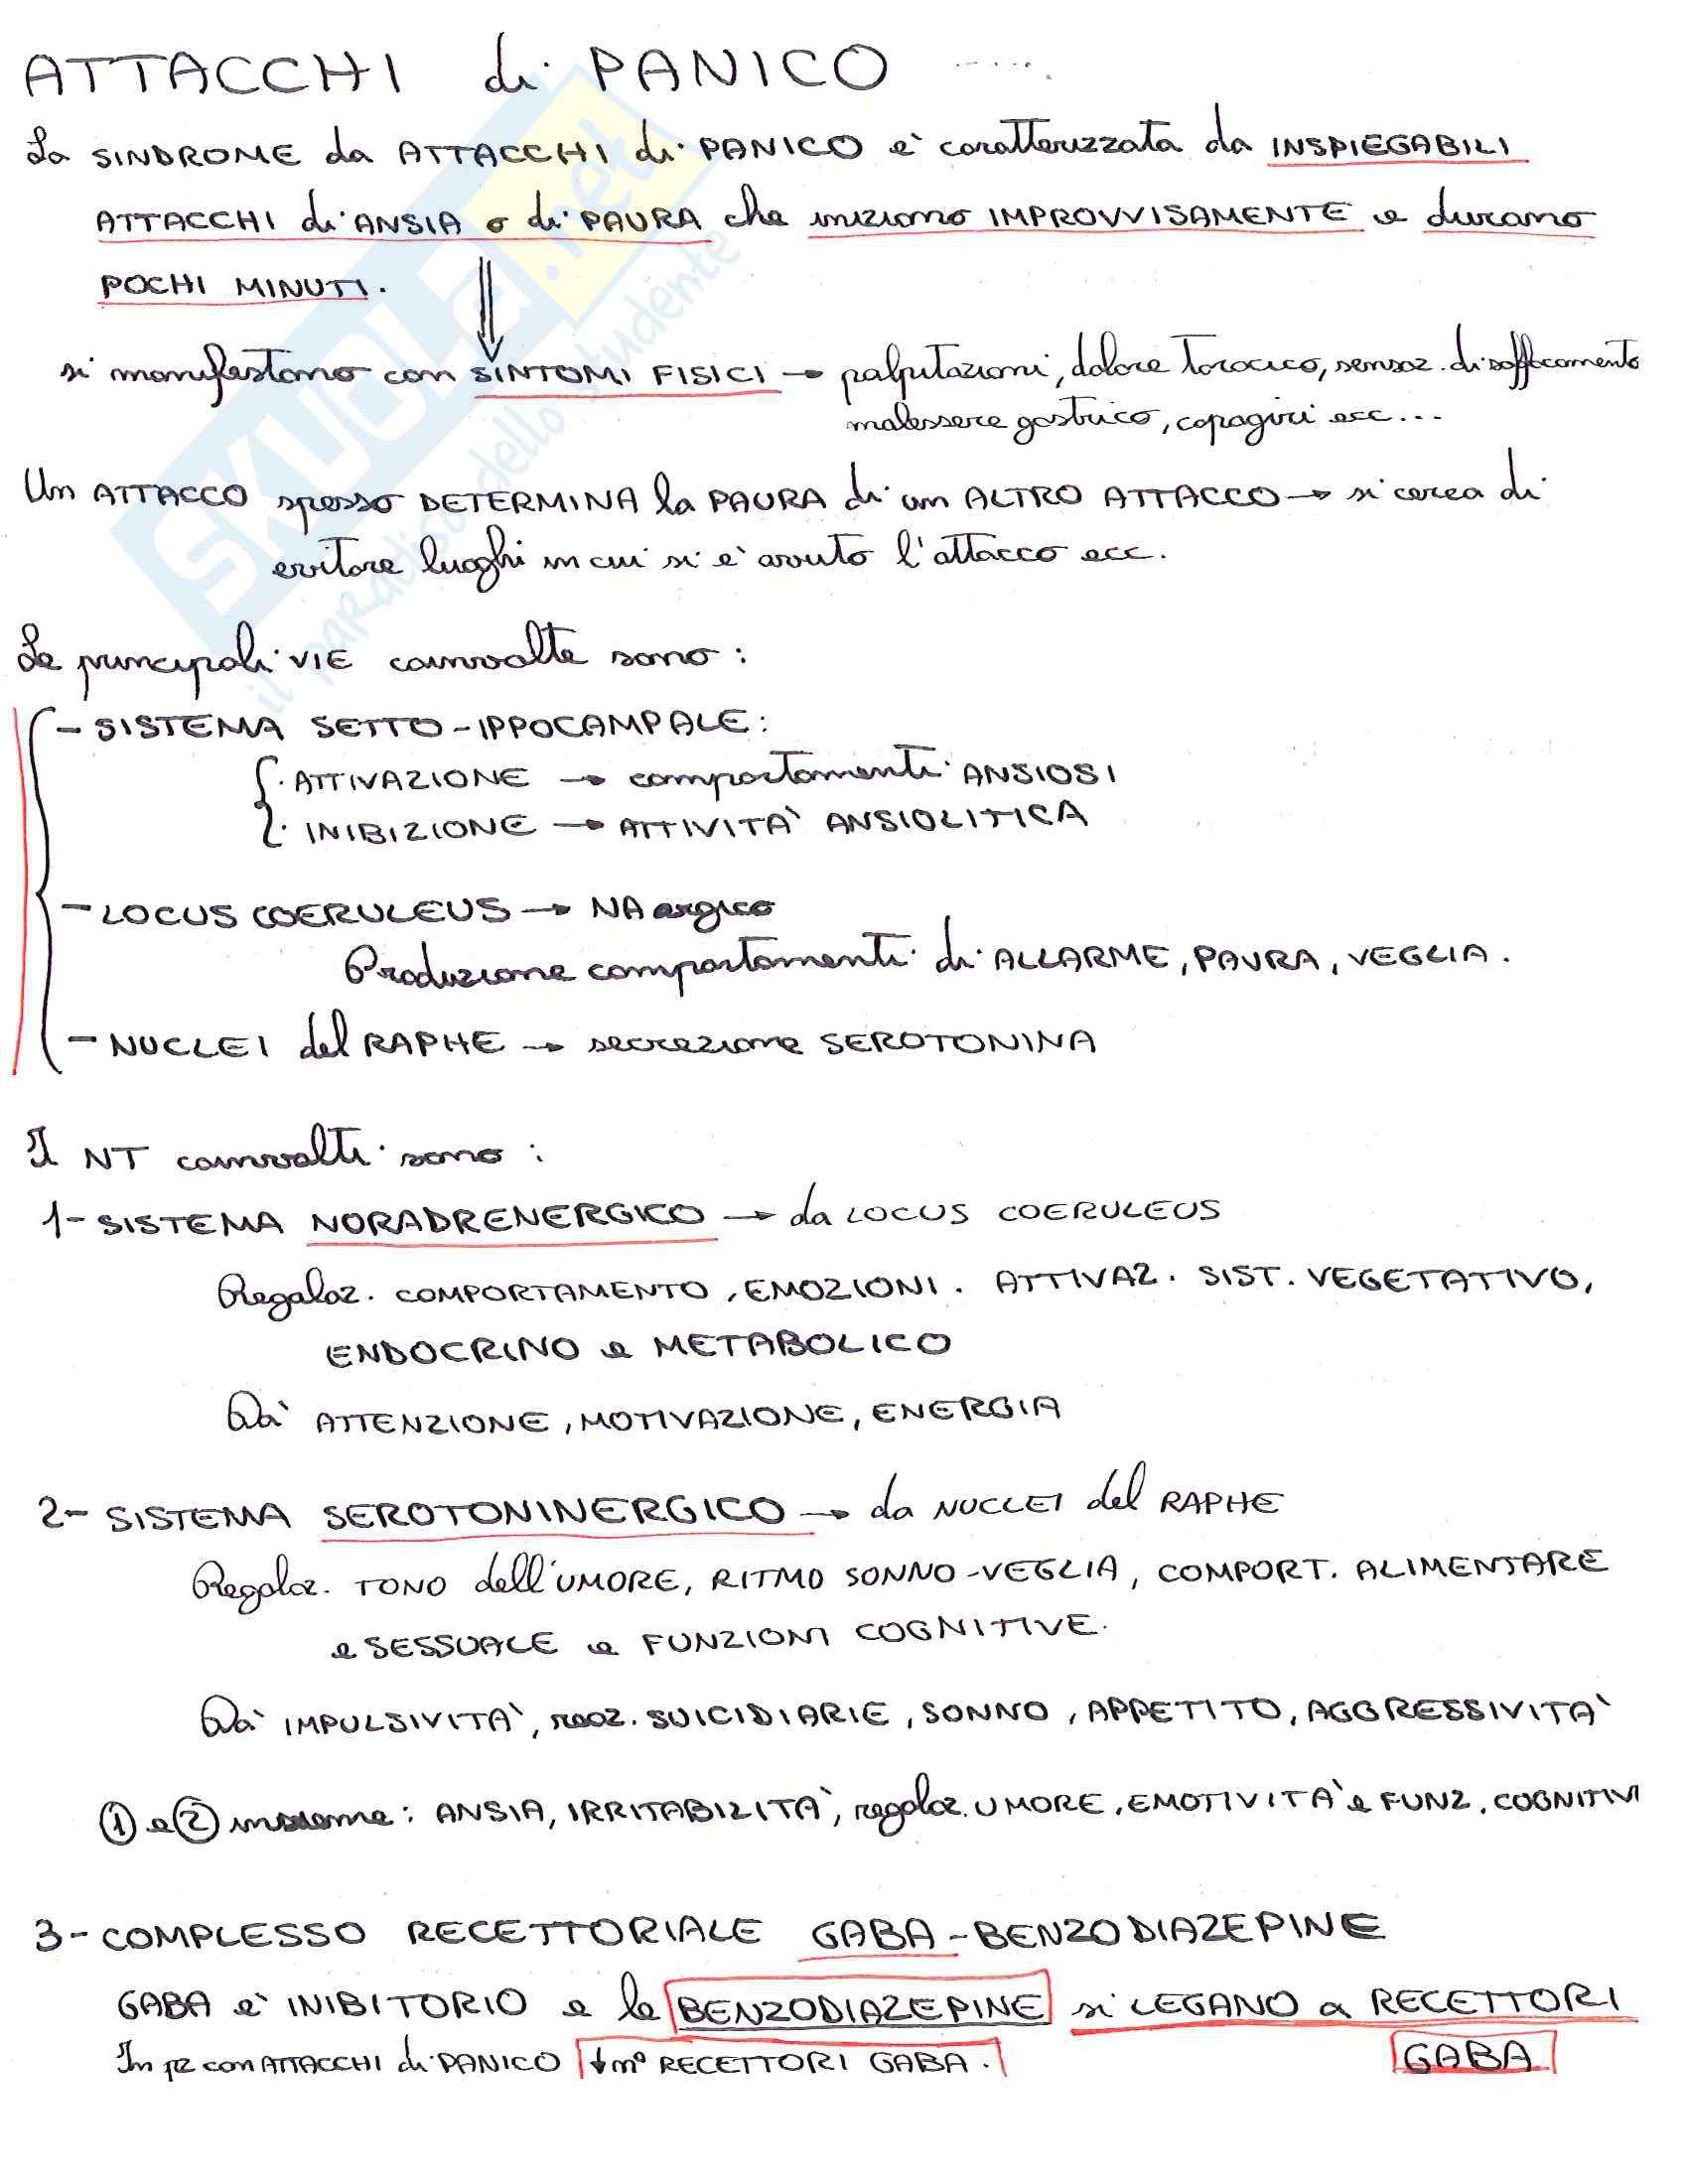 ATTACCHI di PANICO
La SINDROME da ATTACCHI di PANICO è caratterizzata da INSPIEGABILI
ATTACCHI di ANSIA o di PAURA che iniziano IMPROVVISAMENTE e durano
POCHI MINUTI.
si manifestano con SINTOMI FISICI → palpitazioni, dolore toracico, sensaz. di soffocamento
malessere gastrico, capogiri ecc...
Un ATTACCO spesso DETERMINA la PAURA di un ALTRO ATTACCO → si cerca di
evitare luoghi in cui si è avuto l'attacco ecc.
Le principali VIE coinvolte sono:
- SISTEMA SETTO-IPPOCAMPALE:
· ATTIVAZIONE → comportamenti ANSIOSI
· INIBIZIONE → ATTIVITÀ ANSIOLITICA
- LOCUS COERULEUS → NAergico
Produzione comportamenti di ALLARME, PAURA, VEGLIA.
- NUCLEI del RAPHE → secrezione SEROTONINA
I NT coinvolti sono:
1- SISTEMA NORADRENERGICO → da LOCUS COERULEUS
Regolaz. COMPORTAMENTO, EMOZIONI. ATTIVAZ. SIST. VEGETATIVO,
ENDOCRINO e METABOLICO
Dà ATTENZIONE, MOTIVAZIONE, ENERGIA
2- SISTEMA SEROTONINERGICO → da NUCLEI del RAPHE
Regolaz. TONO dell'UMORE, RITMO SONNO-VEGLIA, COMPORT. ALIMENTARE
e SESSUALE e FUNZIONI COGNITIVE.
Dà IMPULSIVITÀ, reaz. SUICIDIARIE, SONNO, APPETITO, AGGRESSIVITÀ
① e ② insieme: ANSIA, IRRITABILITÀ, regolaz. UMORE, EMOTIVITÀ e FUNZ. COGNITIVI
3- COMPLESSO RECETTORIALE GABA-BENZODIAZEPINE
GABA è INIBITORIO e le BENZODIAZEPINE si LEGANO a RECETTORI
GABA
In pz con ATTACCHI di PANICO ↓n° RECETTORI GABA.
SKUOLa.net
il paradiso dello studente